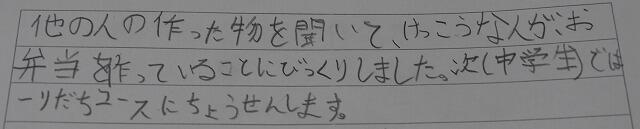 他の人の作った物を聞いて、けっこうな人が、お
弁当を作っていることにびっくりしました。次(中学生)では
一りだちコースにちょうせんします。